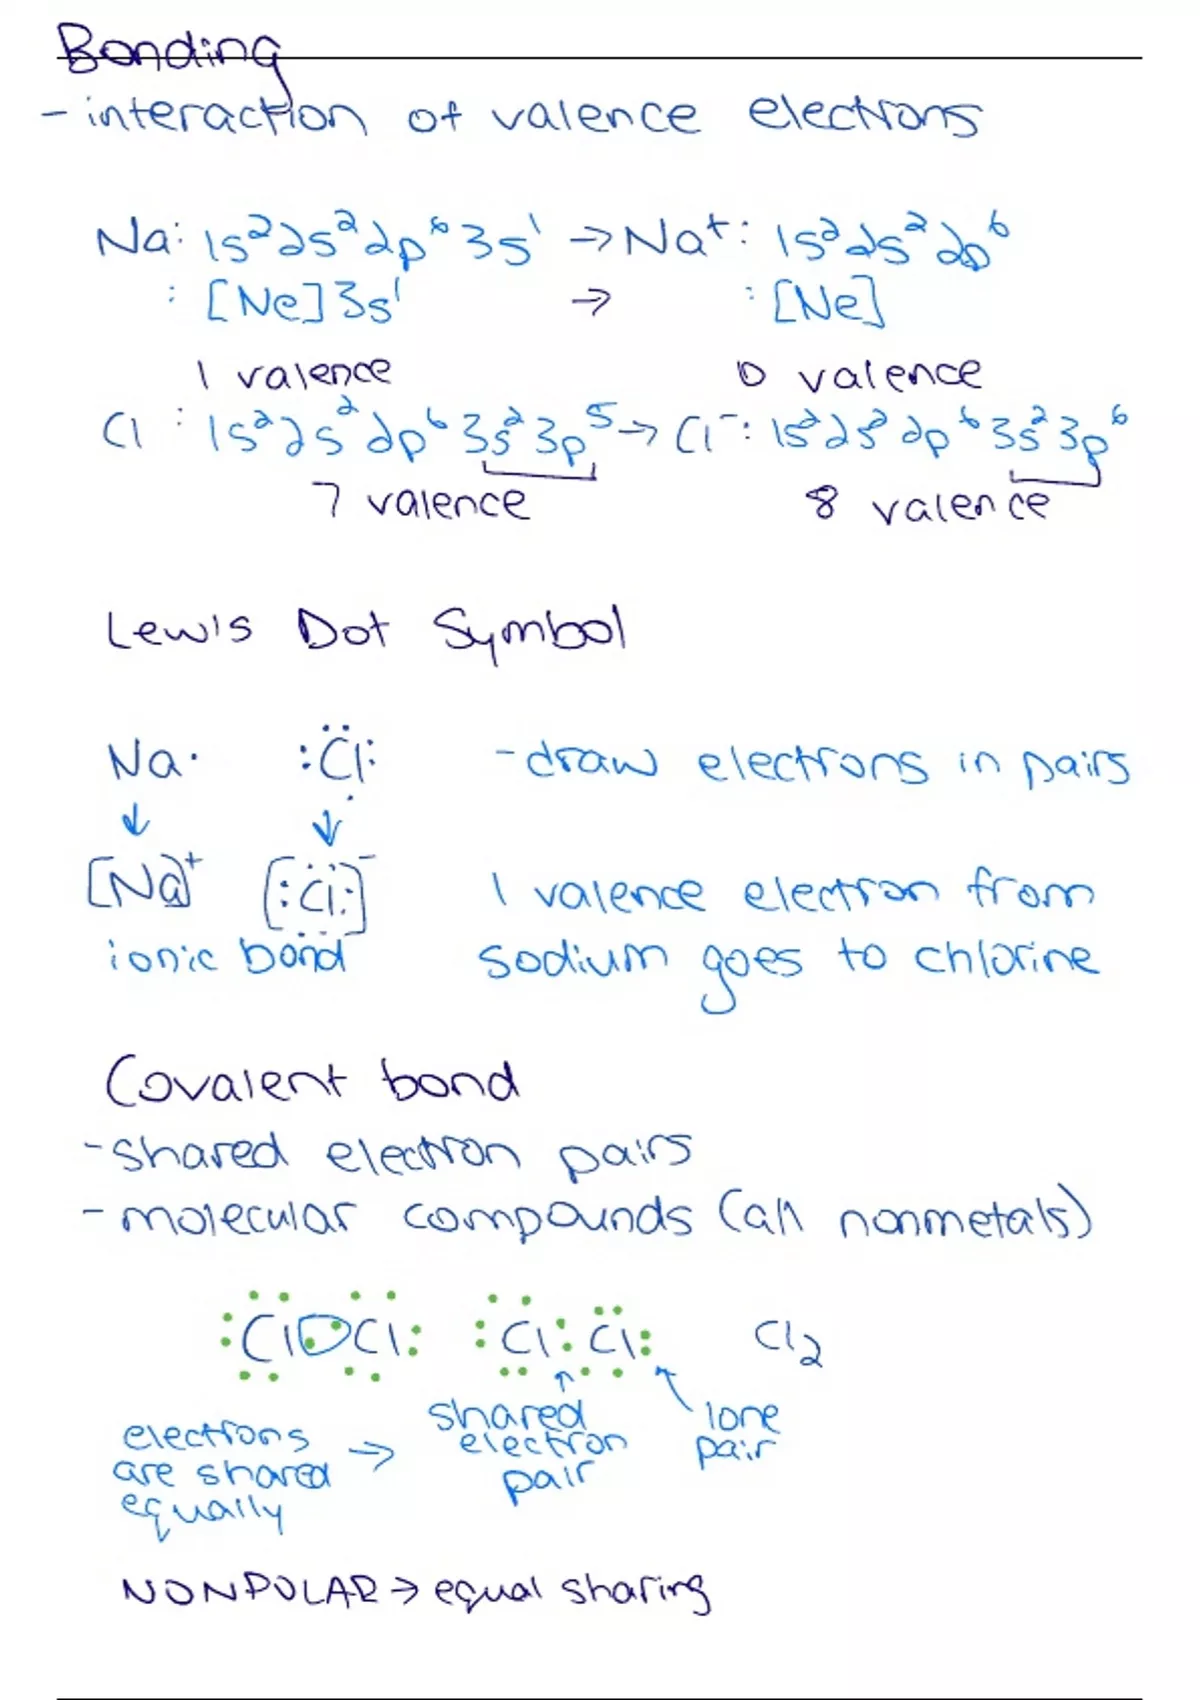 Bonding
- interaction of valence electrons
Na: 1s²2s²2p⁶3s¹ → Na⁺: 1s²2s²2p⁶
: [Ne]3s¹ → : [Ne]
1 valence 0 valence
Cl : 1s²2s²2p⁶3s²3p⁵ → Cl⁻: 1s²2s²2p⁶3s²3p⁶
7 valence 8 valence
Lewis Dot Symbol
Na· :Cl: - draw electrons in pairs
↓ ↓
[Na]⁺ [:Cl:]⁻ 1 valence electron from
ionic bond sodium goes to chlorine
Covalent bond
- shared electron pairs
- molecular compounds (all nonmetals)
:Cl Cl: :Cl:Cl: Cl₂
electrons
are shared
equally
→
shared
electron
pair
lone
pair
NONPOLAR → equal sharing